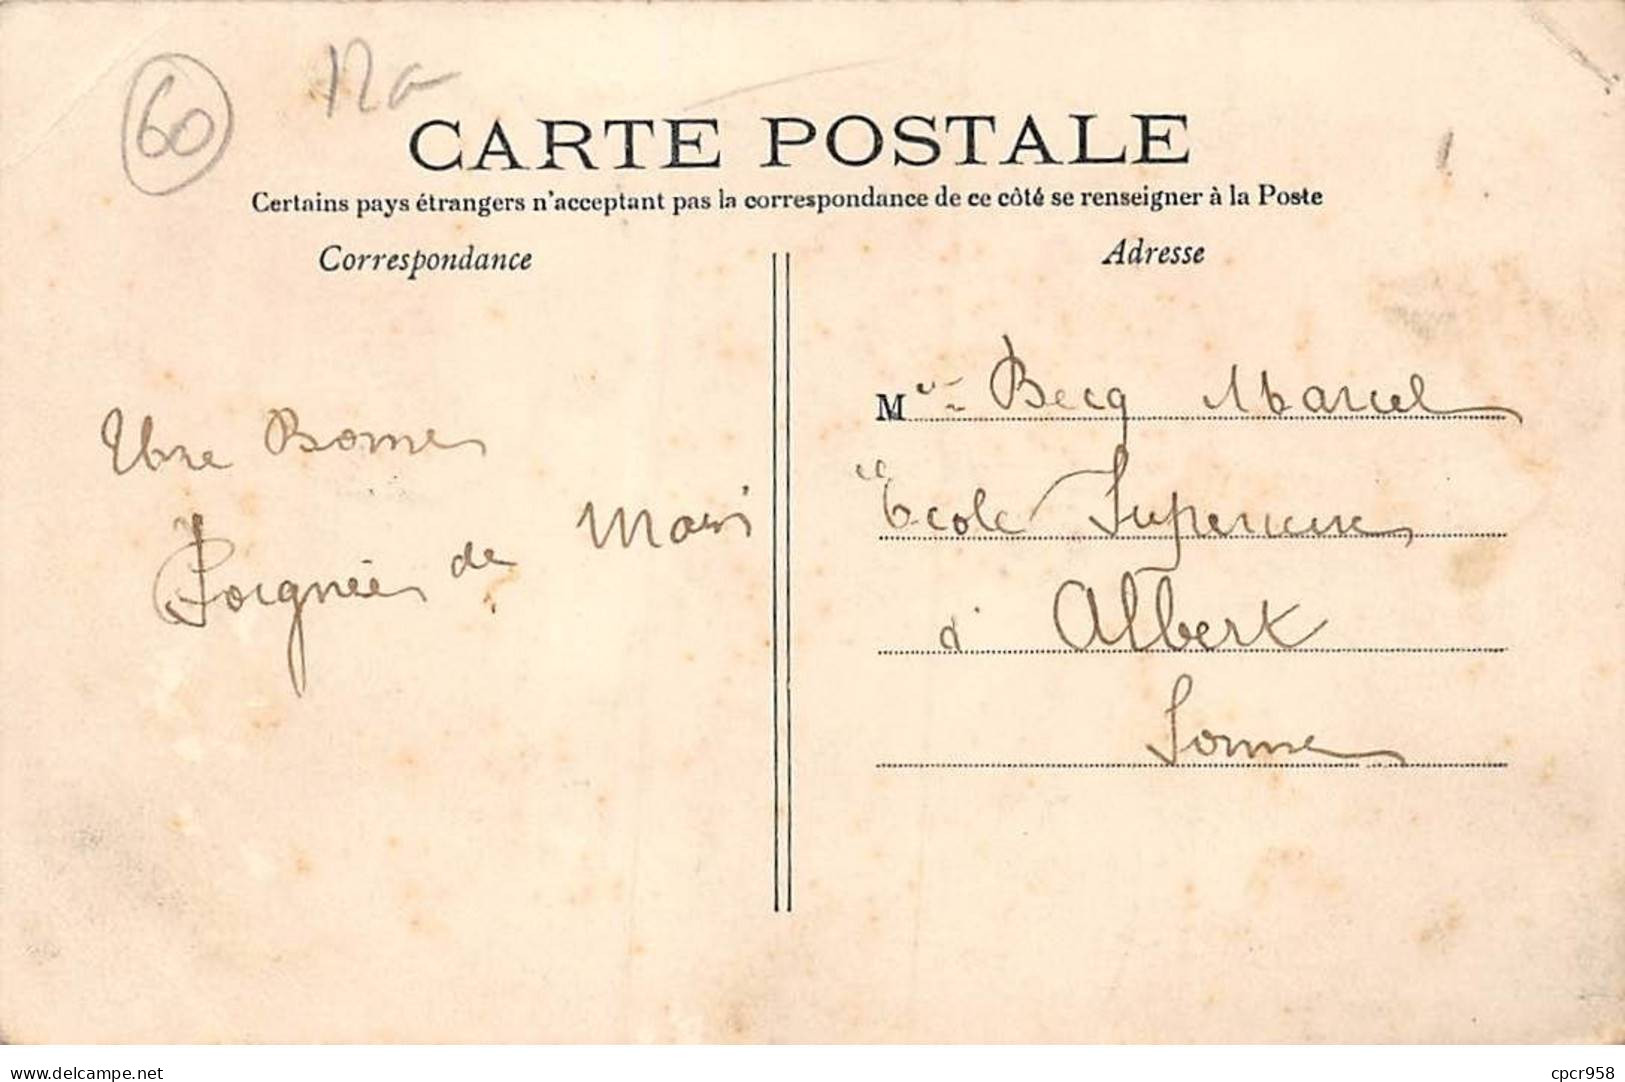 60
CARTE POSTALE
Certains pays étrangers n'acceptant pas la correspondance de ce côté se renseigner à la Poste
Correspondance
Une Bonne
Poignée de Main
Adresse
M Becq Marcel
Ecole Superieure
à Albert
Somme
delcampe.net
cpcr958